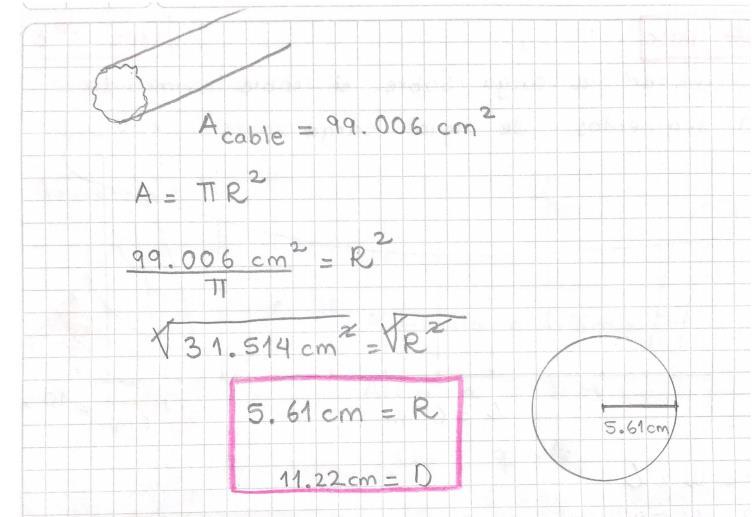 A cable = 99.006 cm²
A = πR²
99.006 cm² / π = R²
√31.514 cm² = √R²
5.61 cm = R
11.22 cm = D
5.61 cm